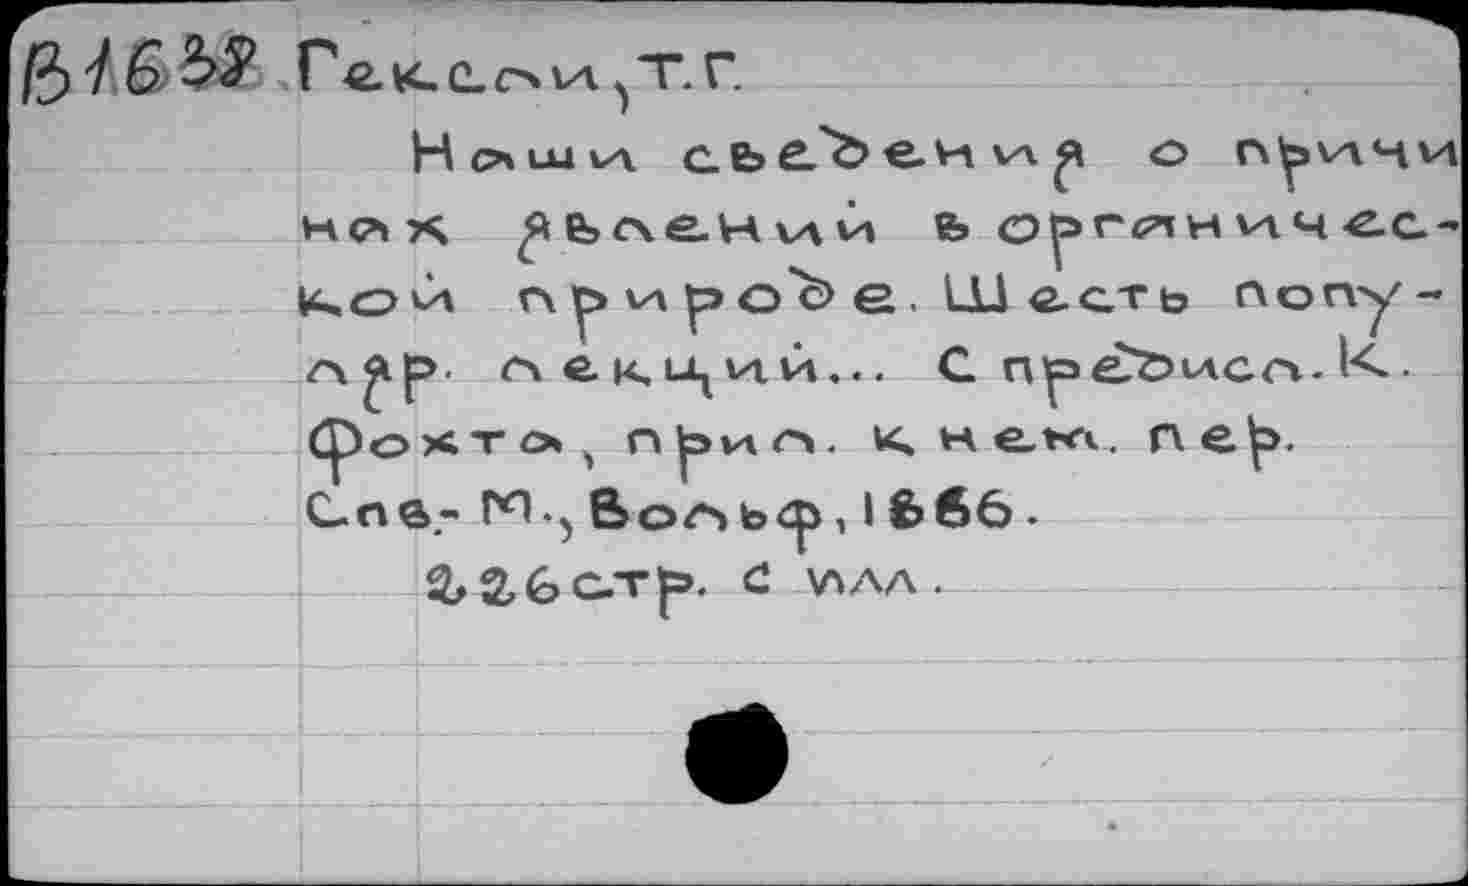 В1638 Гексли, Т.Г.
Наши сведения о причи
нах явлений в органичес-
кой природе. Шесть попу-
ляр. лекций... С предисл. К.
Фохта, прил. к нем. пер.
Спв.- М., Вольф, 1866.
226 стр. с илл.